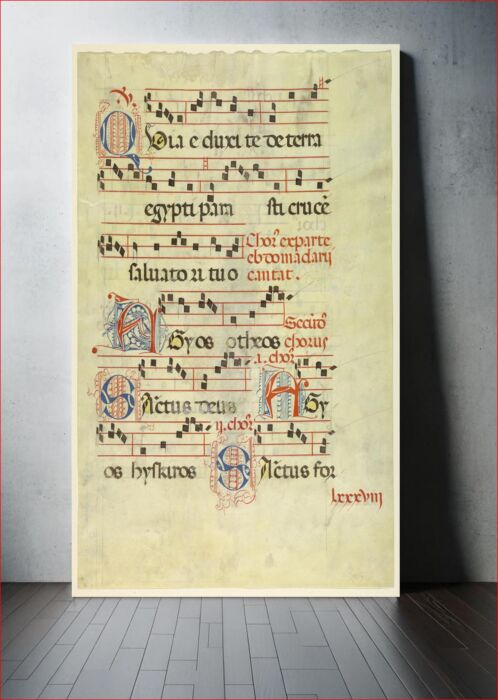 Quia e duxi te de terra
egypti para sti crucē
saluato ri tuo
Chorꝰ ex parte
ebdomadarij
cantat.
Agyos otheos
Secūdꝰ
chorus
.i. chorꝰ
Sāctus deus Agy
ij. chorꝰ
os hyskiros Sāctus for
lxxxviij